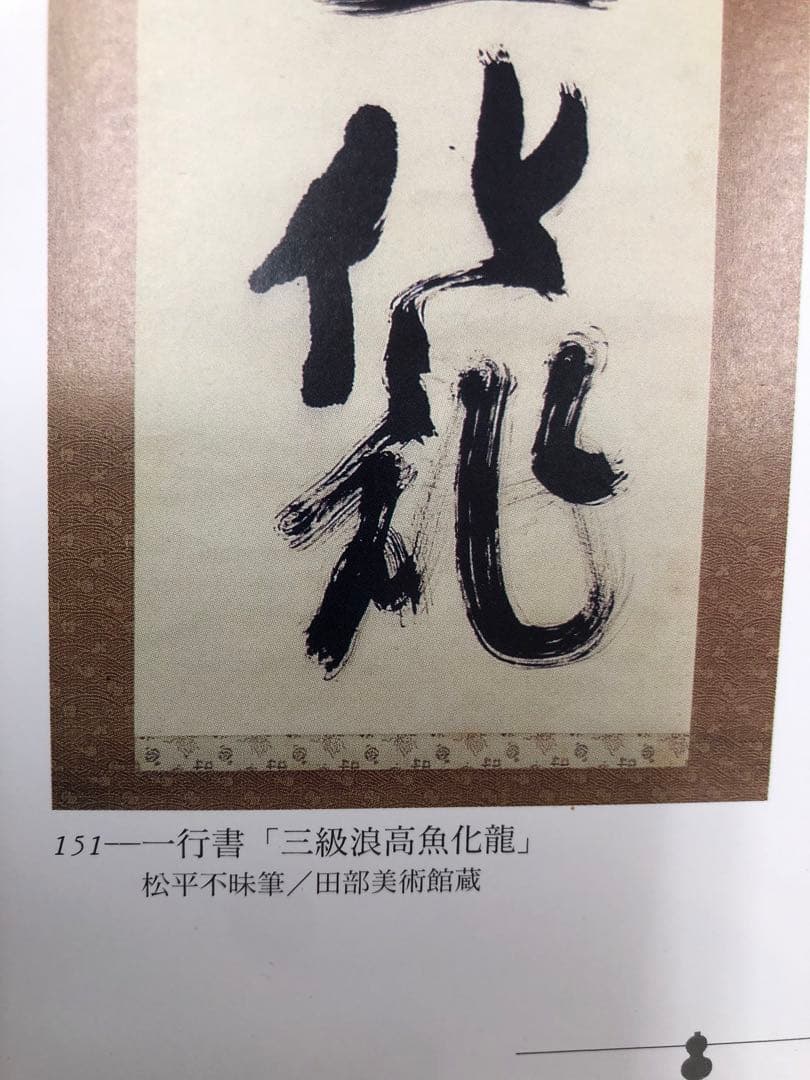 化龍
151—一行書「三級浪高魚化龍」
松平不昧筆／田部美術館蔵